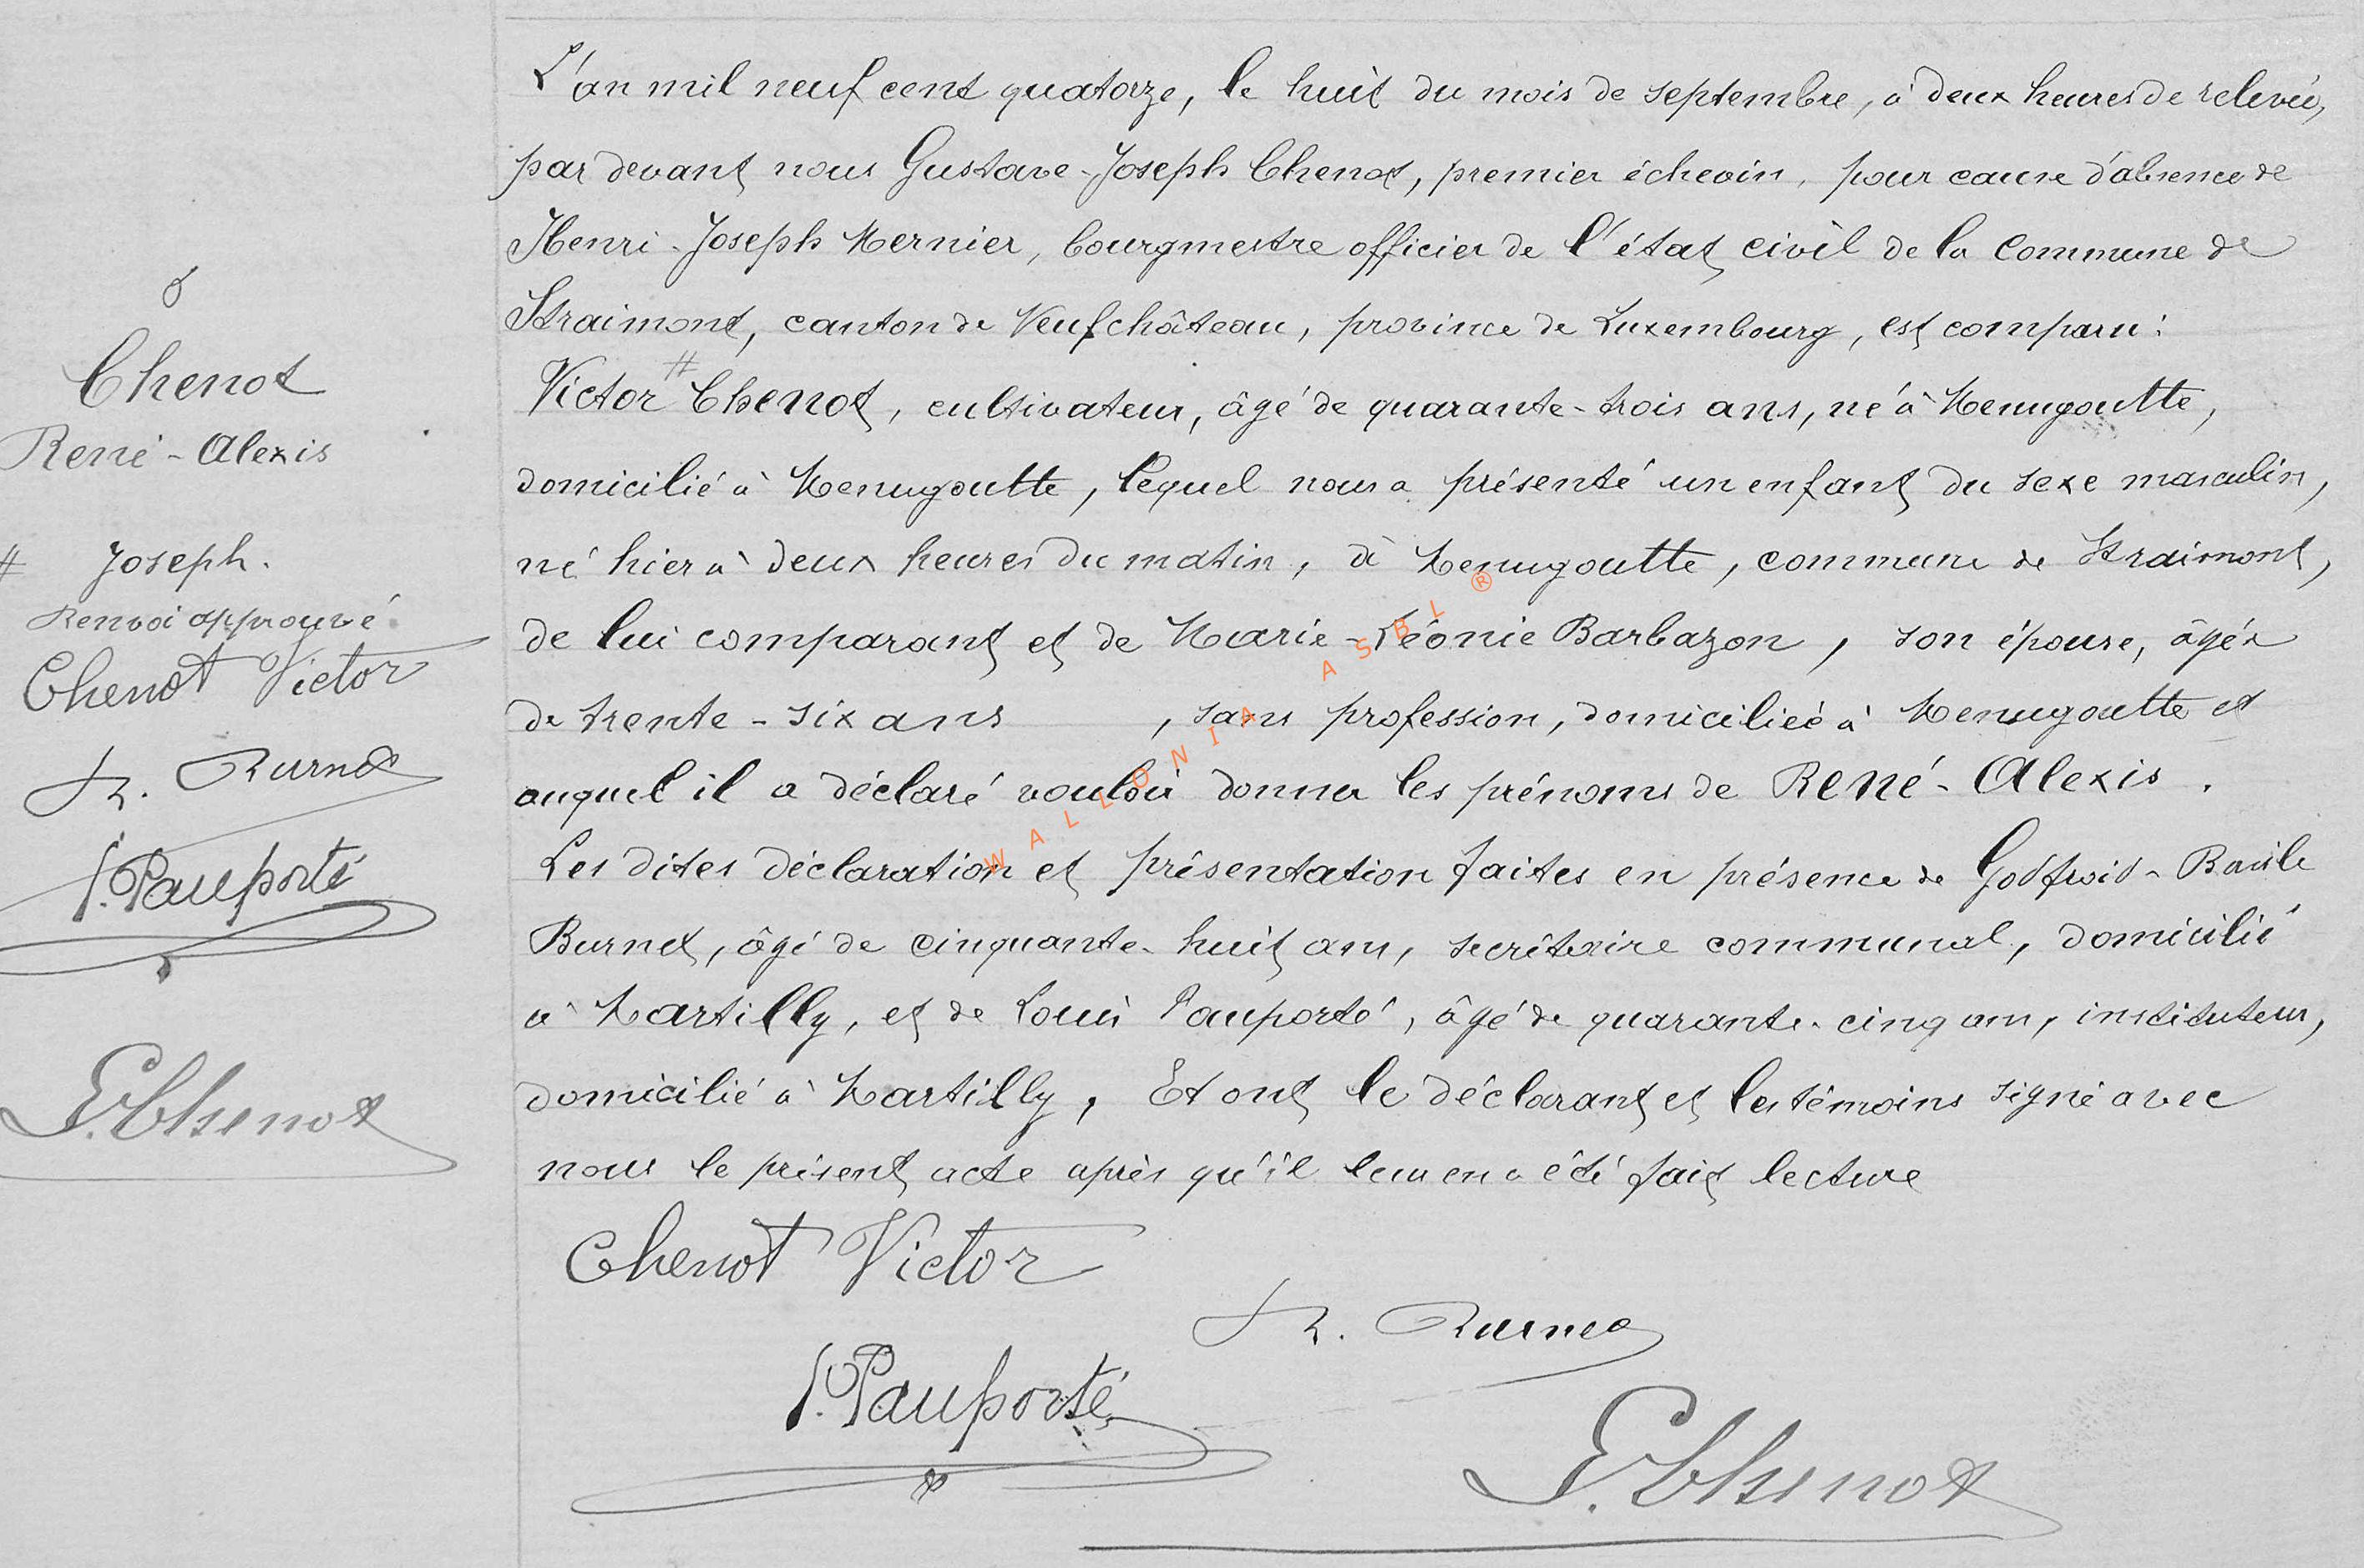 6
Chenot
René-Alexis
# Joseph.
Renvoi approuvé
Chenot Victor
Burnet
Pauporté
G. Chenot
L'an mil neuf cent quatorze, le huit du mois de septembre, à deux heures de relevée,
par devant nous Gustave-Joseph Chenot, premier échevin, pour cause d'absence de
Henri-Joseph Mernier, bourgmestre officier de l'état civil de la commune de
Straimont, canton de Neufchâteau, province de Luxembourg, est comparu:
Victor # Chenot, cultivateur, âgé de quarante-trois ans, né à Menugoutte,
domicilié à Menugoutte, lequel nous a présenté un enfant du sexe masculin,
né hier à deux heures du matin, à Menugoutte, commune de Straimont,
de lui comparant et de Marie-Léonie Barbazon, son épouse, âgée
de trente-six ans , sans profession, domiciliée à Menugoutte et
auquel il a déclaré vouloir donner les prénoms de René-Alexis.
Les dites déclaration et présentation faites en présence de Godfroid-Basile
Burnet, âgé de cinquante-huit ans, secrétaire communal, domicilié
à Martilly, et de Louis Pauporté, âgé de quarante-cinq ans, instituteur,
domicilié à Martilly, Et ont le déclarant et les témoins signé avec
nous le présent acte après qu'il leur en a été fait lecture
Chenot Victor
Burnet
Pauporté
G. Chenot
WALLONIA ASBL ®